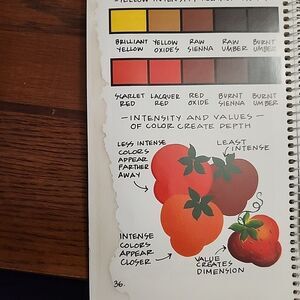 BRILLIANT YELLOW
YELLOW OXIDES
RAW SIENNA
RAW UMBER
BURNT UMBER
SCARLET RED
LACQUER RED
RED OXIDE
BURNT SIENNA
BURNT UMBER
— INTENSITY AND VALUES —
OF COLOR CREATE DEPTH
LESS INTENSE
COLORS
APPEAR
FARTHER
AWAY
LEAST
INTENSE
INTENSE
COLORS
APPEAR
CLOSER
VALUE
CREATES
DIMENSION
36.